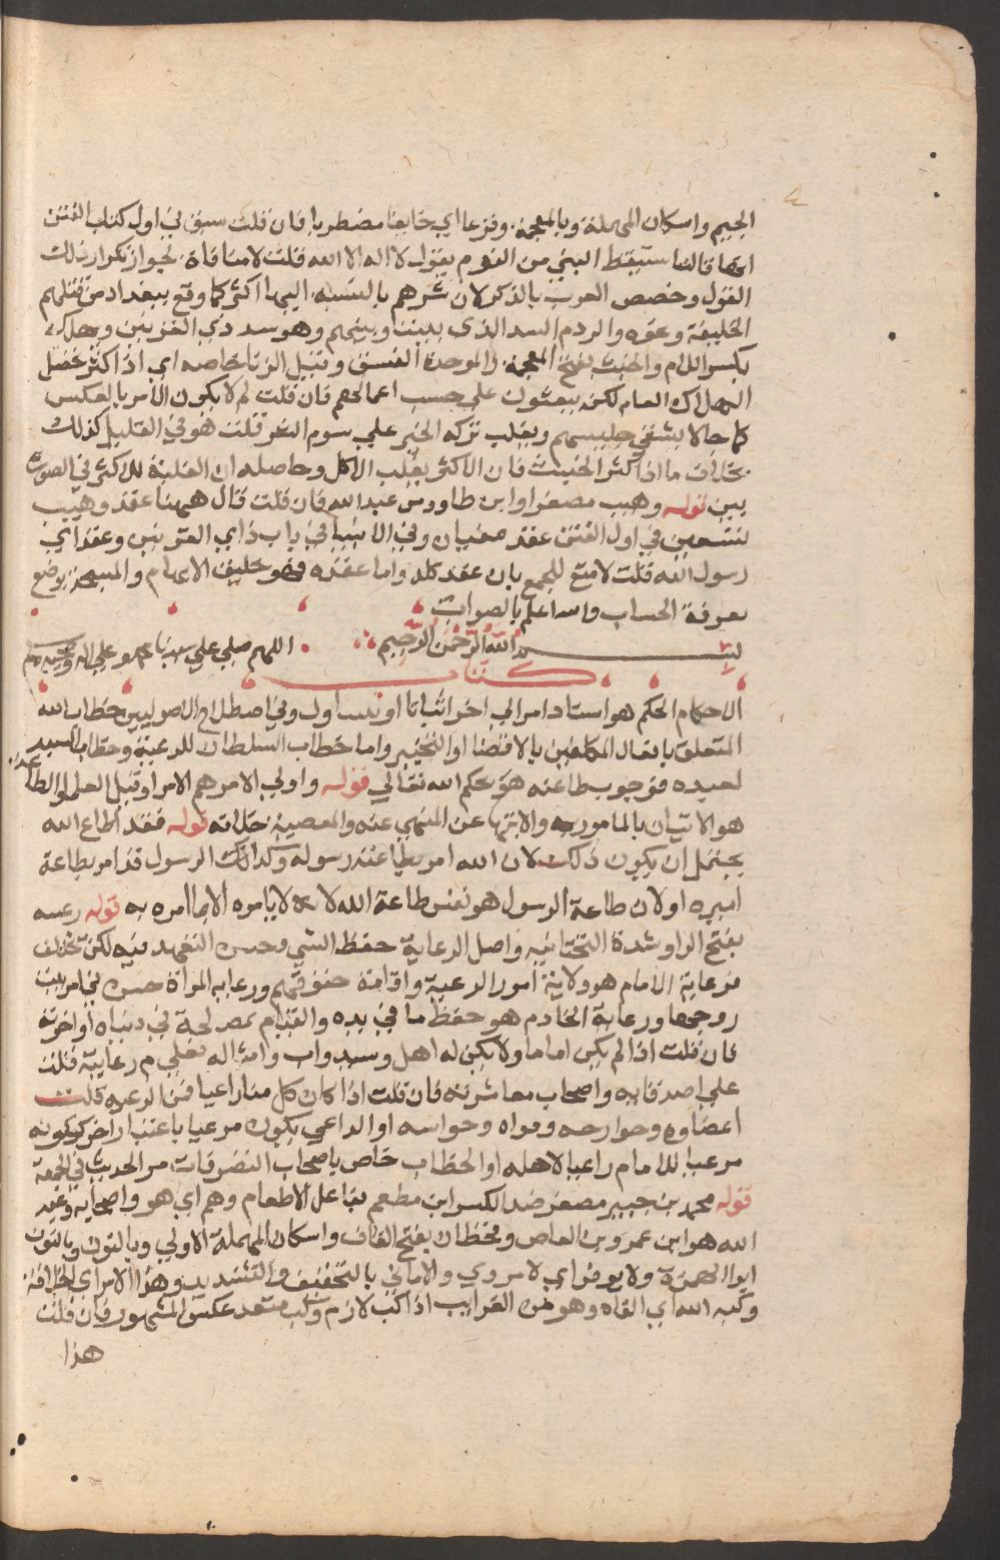 الجيم واسكان المهملة وبالمعجمة وفزعا اي خايفا مضطربا فان قلت سبق في اول كتاب الفتن
انها قالت استيقظ النبي من النوم يقول لا اله الا الله قلت لا منافاة لجواز تكرار ذلك
القول وخصص العرب بالذكر لان شرهم بالنسبة اليها اكثر كما وقع ببغداد من قتلهم
الخليفة ونحوه والردم السد الذي بيننا وبينهم وهو سد ذي القرنين ونهلك
بكسر اللام والخبث بفتح المعجمة والموحدة الفسق وقيل الزنا خاصة اي اذا كثر حصل
الهلاك العام لكن يبعثون على حسب اعمالهم فان قلت لم لا يكون الامر بالعكس
كما جا لا يشقى جليسهم ويغلب بركة الخير على سوم الشر قلت هو في القليل كذلك
بخلاف ما اذا كثر الخبيث فان الاكثر يغلب الاقل وحاصله ان الغلبة للاكثر في الصورتين
بين قوله وهيب مصغرا وابن طاووس عبد الله فان قلت قال ههنا عقد وهيب
تسعين في اول الفتن عقد سفيان وفي الانبيا في باب ذي القرنين وعقد اي
رسول الله قلت لا منع للجمع بان عقد كلهم واما عقده فهو تحليق الابهام والمسبحة بوضع
يعرفه الحساب والله اعلم بالصواب
بسم الله الرحمن الرحيم اللهم صلي على سيدنا محمد وعلى اله وصحبه وسلم
كتاب
الاحكام الحكم هو اسناد امر الي اخر اثباتا او نفيا وفي اصطلاح الاصوليين خطاب الله
المتعلق بافعال المكلفين بالاقتضا او التخيير واما خطاب السلطان للرعية وخطاب السيد
لعبده فوجوب طاعته هو بحكم الله تعالي قوله واولي الامر هم الامرا وقيل العلما والطاعة
هو الاتيان بالمامور به والانتها عن المنهي عنه والمعصية خلافه قوله فقد اطاع الله
يحتمل ان يكون ذلك لان الله امر بطاعته رسوله وكذلك الرسول قد امر بطاعة
اميره او لان طاعة الرسول هو نفس طاعة الله لانه لا يامره الا بما امره به قوله رعيه
بفتح الرا وشدة التحتانيه واصل الرعاية حفظ الشي وحسن التعهد فيه لكن تختلف
فرعاية الامام هو ولاية امور الرعية واقامة حقوقهم ورعاية المراة حسن في امر بيت
زوجها ورعاية الخادم هو حفظ ما في يده والقيام بمصلحة في دنياه او اخرته
فان قلت اذا لم يكن اماما ولا يكن له اهل وسيد واب وامثاله فعلي م رعايته قلت
علي اصدقايه واصحاب معاشرته فان قلت اذا كان كل منا راعيا فمن الرعيه قلت
اعضاوه وجوارحه وقواه وحواسه او الراعي يكون مرعيا باعتبار اخر ككونه
مرعيا للامام راعيا لاهله او الخطاب خاص باصحاب التصرفات مر الحديث في الجمعة
قوله محمد بن جبير مصغر ضد الكسر ابن مطعم بفاعل الاطعام وهم اي هو واصحابه وعبد
الله هو ابن عمرو بن العاص وقحطان بفتح القاف واسكان المهملة الاولي وبالنون وبالنون
ابو الحمزة ولا يوثر اي لا يروي والاماني بالتخفيف والتشديد وهذا الامر اي الخلافة
وكبه الله اي القاه وهو من الغرايب اذ اكب لازم وكب متعد عكس المشهور فان قلت
هذا